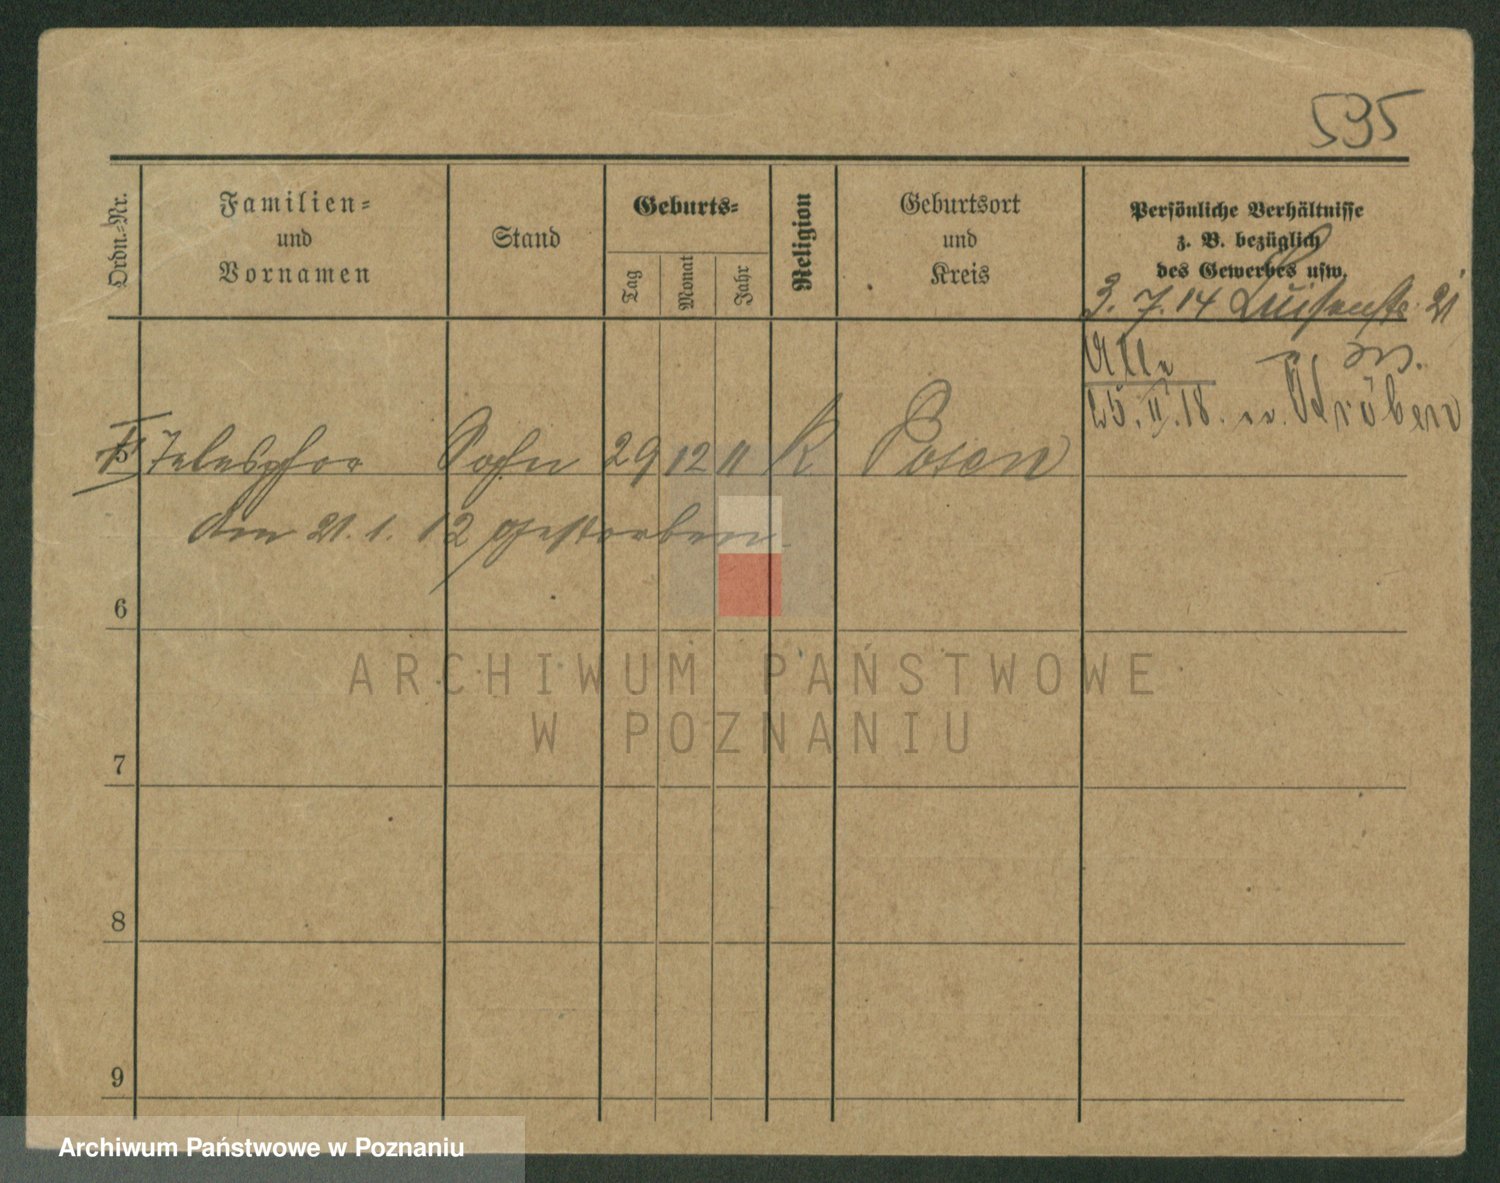 595
Ordn.=Nr.
Familien=
und
Vornamen
Stand
Geburts=
Tag
Monat
Jahr
Religion
Geburtsort
und
Kreis
Persönliche Verhältnisse
z. B. bezüglich
des Gewerbes usw.
3. 7. 14 Luisenstr. 21
Alle
25. II. 18. n. Kröben
5 Telesphor Sohn 29 12 11 K Posen
den 21. 1. 12 gestorben.
6
7
8
9
ARCHIWUM PAŃSTWOWE
W POZNANIU
Archiwum Państwowe w Poznaniu